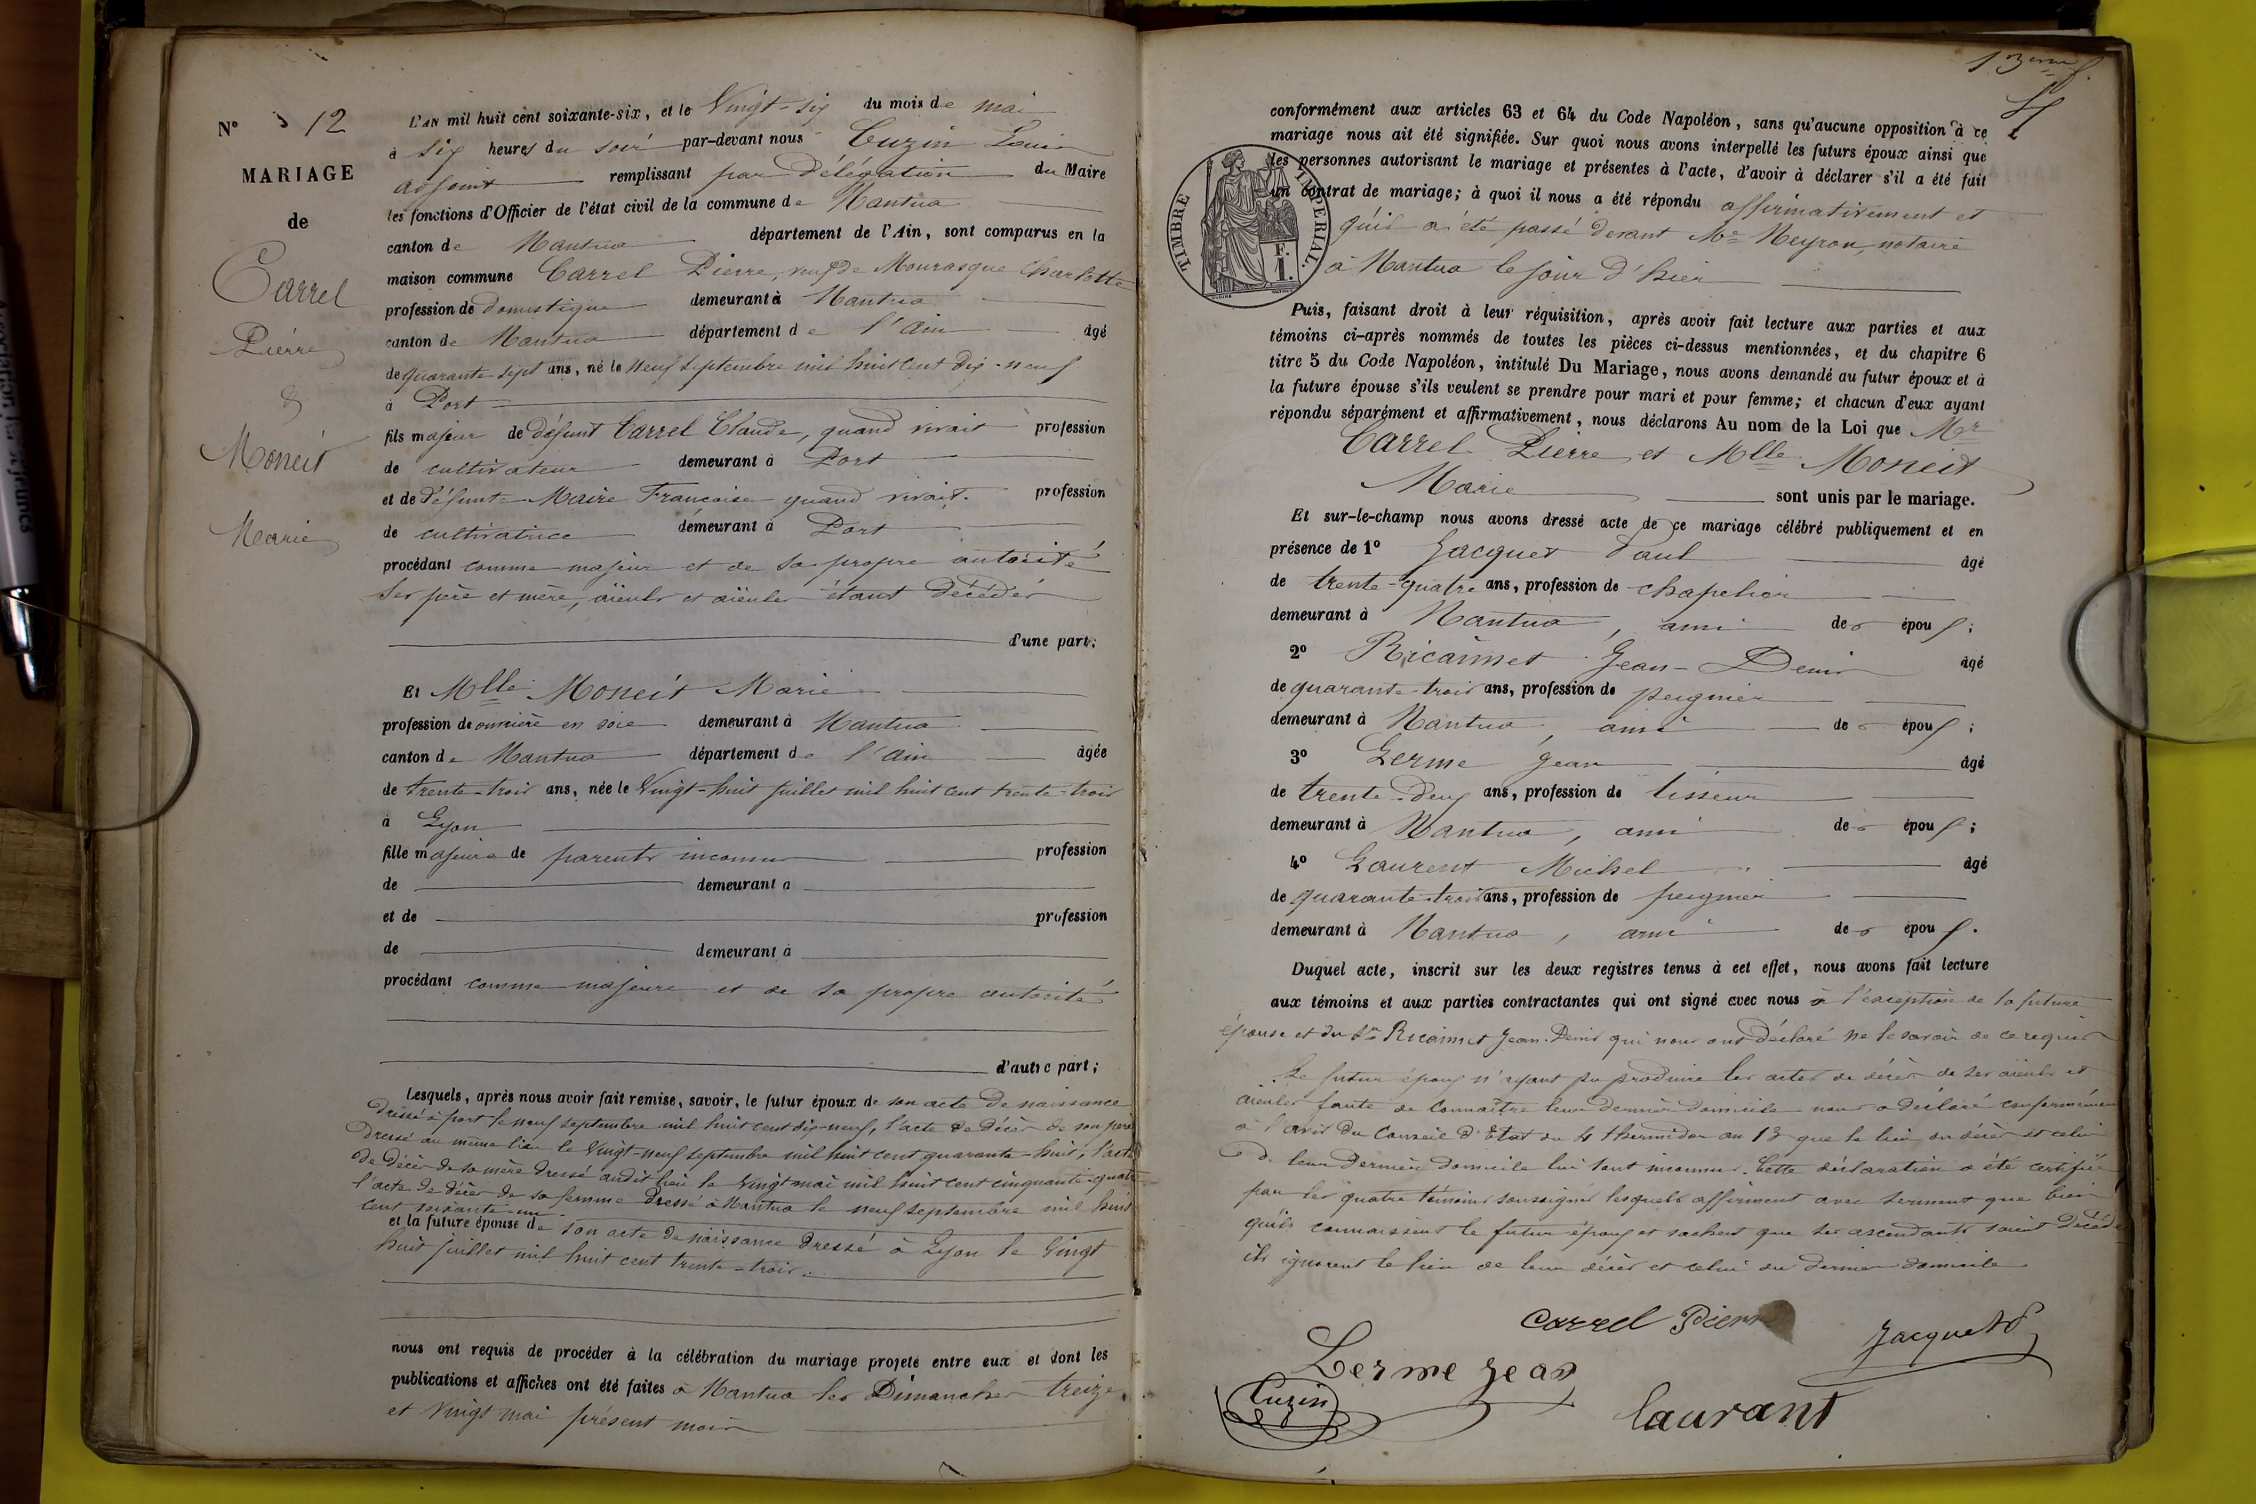 N° 12
MARIAGE
de
Carrel
Pierre
&
Moneit
Marie
L'AN mil huit cent soixante-six, et le Vingt-six du mois de mai
à six heures du soir par-devant nous Cuzin Louis
adjoint remplissant par délégation du Maire
les fonctions d'Officier de l'état civil de la commune de Nantua
canton de Nantua département de l'Ain, sont comparus en la
maison commune Carrel Pierre, veuf de Mourasque Charlotte
profession de domestique demeurant à Nantua
canton de Nantua département de l'Ain âgé
de quarante sept ans, né le neuf septembre mil huit cent dix-neuf
à Port
fils majeur de défunt Carrel Claude, quand vivait profession
de cultivateur demeurant à Port
et de défunte Maire Françoise quand vivait profession
de cultivatrice demeurant à Port
procédant comme majeur et de sa propre autorité
ses père et mère, aïeuls et aïeules étant décédés
d'une part;
Et Mlle Moneit Marie
profession de ouvrière en soie demeurant à Nantua
canton de Nantua département de l'Ain âgée
de trente-trois ans, née le Vingt-huit juillet mil huit cent trente-trois
à Lyon
fille majeure de parents inconnus profession
de demeurant à
et de profession
de demeurant à
procédant comme majeure et de sa propre autorité
d'autre part;
Lesquels, après nous avoir fait remise, savoir, le futur époux de son acte de naissance
dressé à port le neuf septembre mil huit cent dix-neuf, l'acte de décès de son père
dressé au même lieu le Vingt-neuf septembre mil huit cent quarante-huit, l'acte
de décès de sa mère dressé audit lieu le Vingt mai mil huit cent cinquante-quatre
l'acte de décès de sa femme dressé à Nantua le neuf septembre mil huit
cent soixante-un
et la future épouse de son acte de naissance dressé à Lyon le Vingt
huit juillet mil huit cent trente-trois.
nous ont requis de procéder à la célébration du mariage projeté entre eux et dont les
publications et affiches ont été faites à Nantua les Dimanches treize
et Vingt mai présent mois
13eme f.
conformément aux articles 63 et 64 du Code Napoléon, sans qu'aucune opposition à ce
mariage nous ait été signifiée. Sur quoi nous avons interpellé les futurs époux ainsi que
les personnes autorisant le mariage et présentes à l'acte, d'avoir à déclarer s'il a été fait
un contrat de mariage; à quoi il nous a été répondu affirmativement et
qu'il a été passé devant Me Neyron, notaire
à Nantua le jour d'hier
TIMBRE IMPÉRIAL.
1 F.
Puis, faisant droit à leur réquisition, après avoir fait lecture aux parties et aux
témoins ci-après nommés de toutes les pièces ci-dessus mentionnées, et du chapitre 6
titre 5 du Code Napoléon, intitulé Du Mariage, nous avons demandé au futur époux et à
la future épouse s'ils veulent se prendre pour mari et pour femme; et chacun d'eux ayant
répondu séparément et affirmativement, nous déclarons Au nom de la Loi que Mr
Carrel Pierre et Mlle Moneit
Marie sont unis par le mariage.
Et sur-le-champ nous avons dressé acte de ce mariage célébré publiquement et en
présence de 1° Jacquet Paul âgé
de trente-quatre ans, profession de chapelier
demeurant à Nantua, ami des époux;
2° Ricannet Jean-Denis âgé
de quarante-trois ans, profession de peignier
demeurant à Nantua, ami des époux;
3° Lerme Jean âgé
de trente-deux ans, profession de tisseur
demeurant à Nantua, ami des époux;
4° Laurent Michel âgé
de quarante-trois ans, profession de peignier
demeurant à Nantua, ami des époux.
Duquel acte, inscrit sur les deux registres tenus à cet effet, nous avons fait lecture
aux témoins et aux parties contractantes qui ont signé avec nous à l'exception de la future
épouse et du Sr Ricannet Jean-Denis qui nous ont déclaré ne le savoir de ce requis
Le futur époux n'ayant pu produire les actes de décès de ses aïeuls et
aïeules faute de connaître leur dernier domicile nous a déclaré conformément
à l'avis du Conseil d'Etat du 4 thermidor an 13 que le lieu du décès et celui
de leur dernier domicile lui sont inconnus. Cette déclaration a été certifiée
par les quatre témoins soussignés lesquels affirment avec serment que bien
qu'ils connaissent le futur époux et sachent que ses ascendants soient décédés
ils ignorent le lieu de leur décès et celui du dernier domicile
carrel Pierre
Jacquet P
Lerme jean
Cuzin
laurant